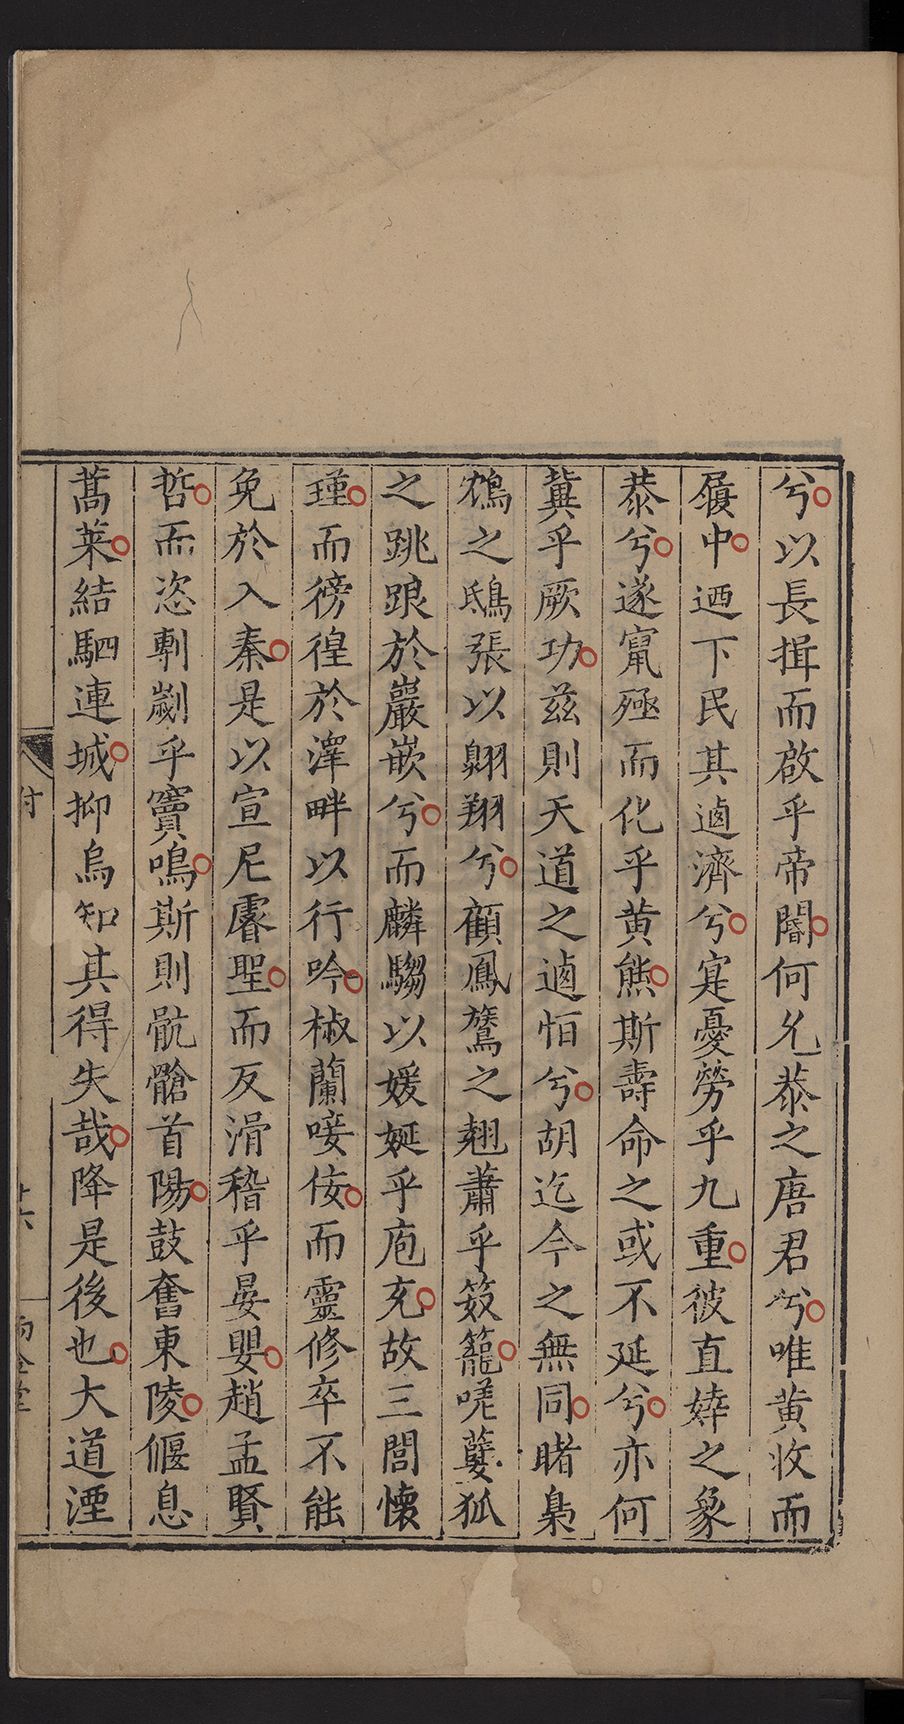 兮以長揖而啟乎帝閽何允恭之唐君兮唯黄收而
履中迺下民其遹濟兮寔憂勞乎九重彼直婞之象
恭兮遂竄殛而化乎黄熊斯壽命之或不延兮亦何
冀乎厥功兹則天道之遹怕兮胡迄今之無同睹梟
鴆之鴟張以翺翔兮顧鳳鶩之翹蕭乎笯籠嗟孽狐
之跳踉於巖嵌兮而麟騶以媛娫乎庖充故三閭懷
瑾而徬徨於澤畔以行吟椒蘭唼佞而靈修卒不能
免於入秦是以宣尼睿聖而反滑稽乎晏嬰趙孟賢
哲而恣剚劌乎竇鳴斯則骯髒首陽鼓奮東陵偃息
蒿萊結駟連城抑烏知其得失哉降是後也大道湮